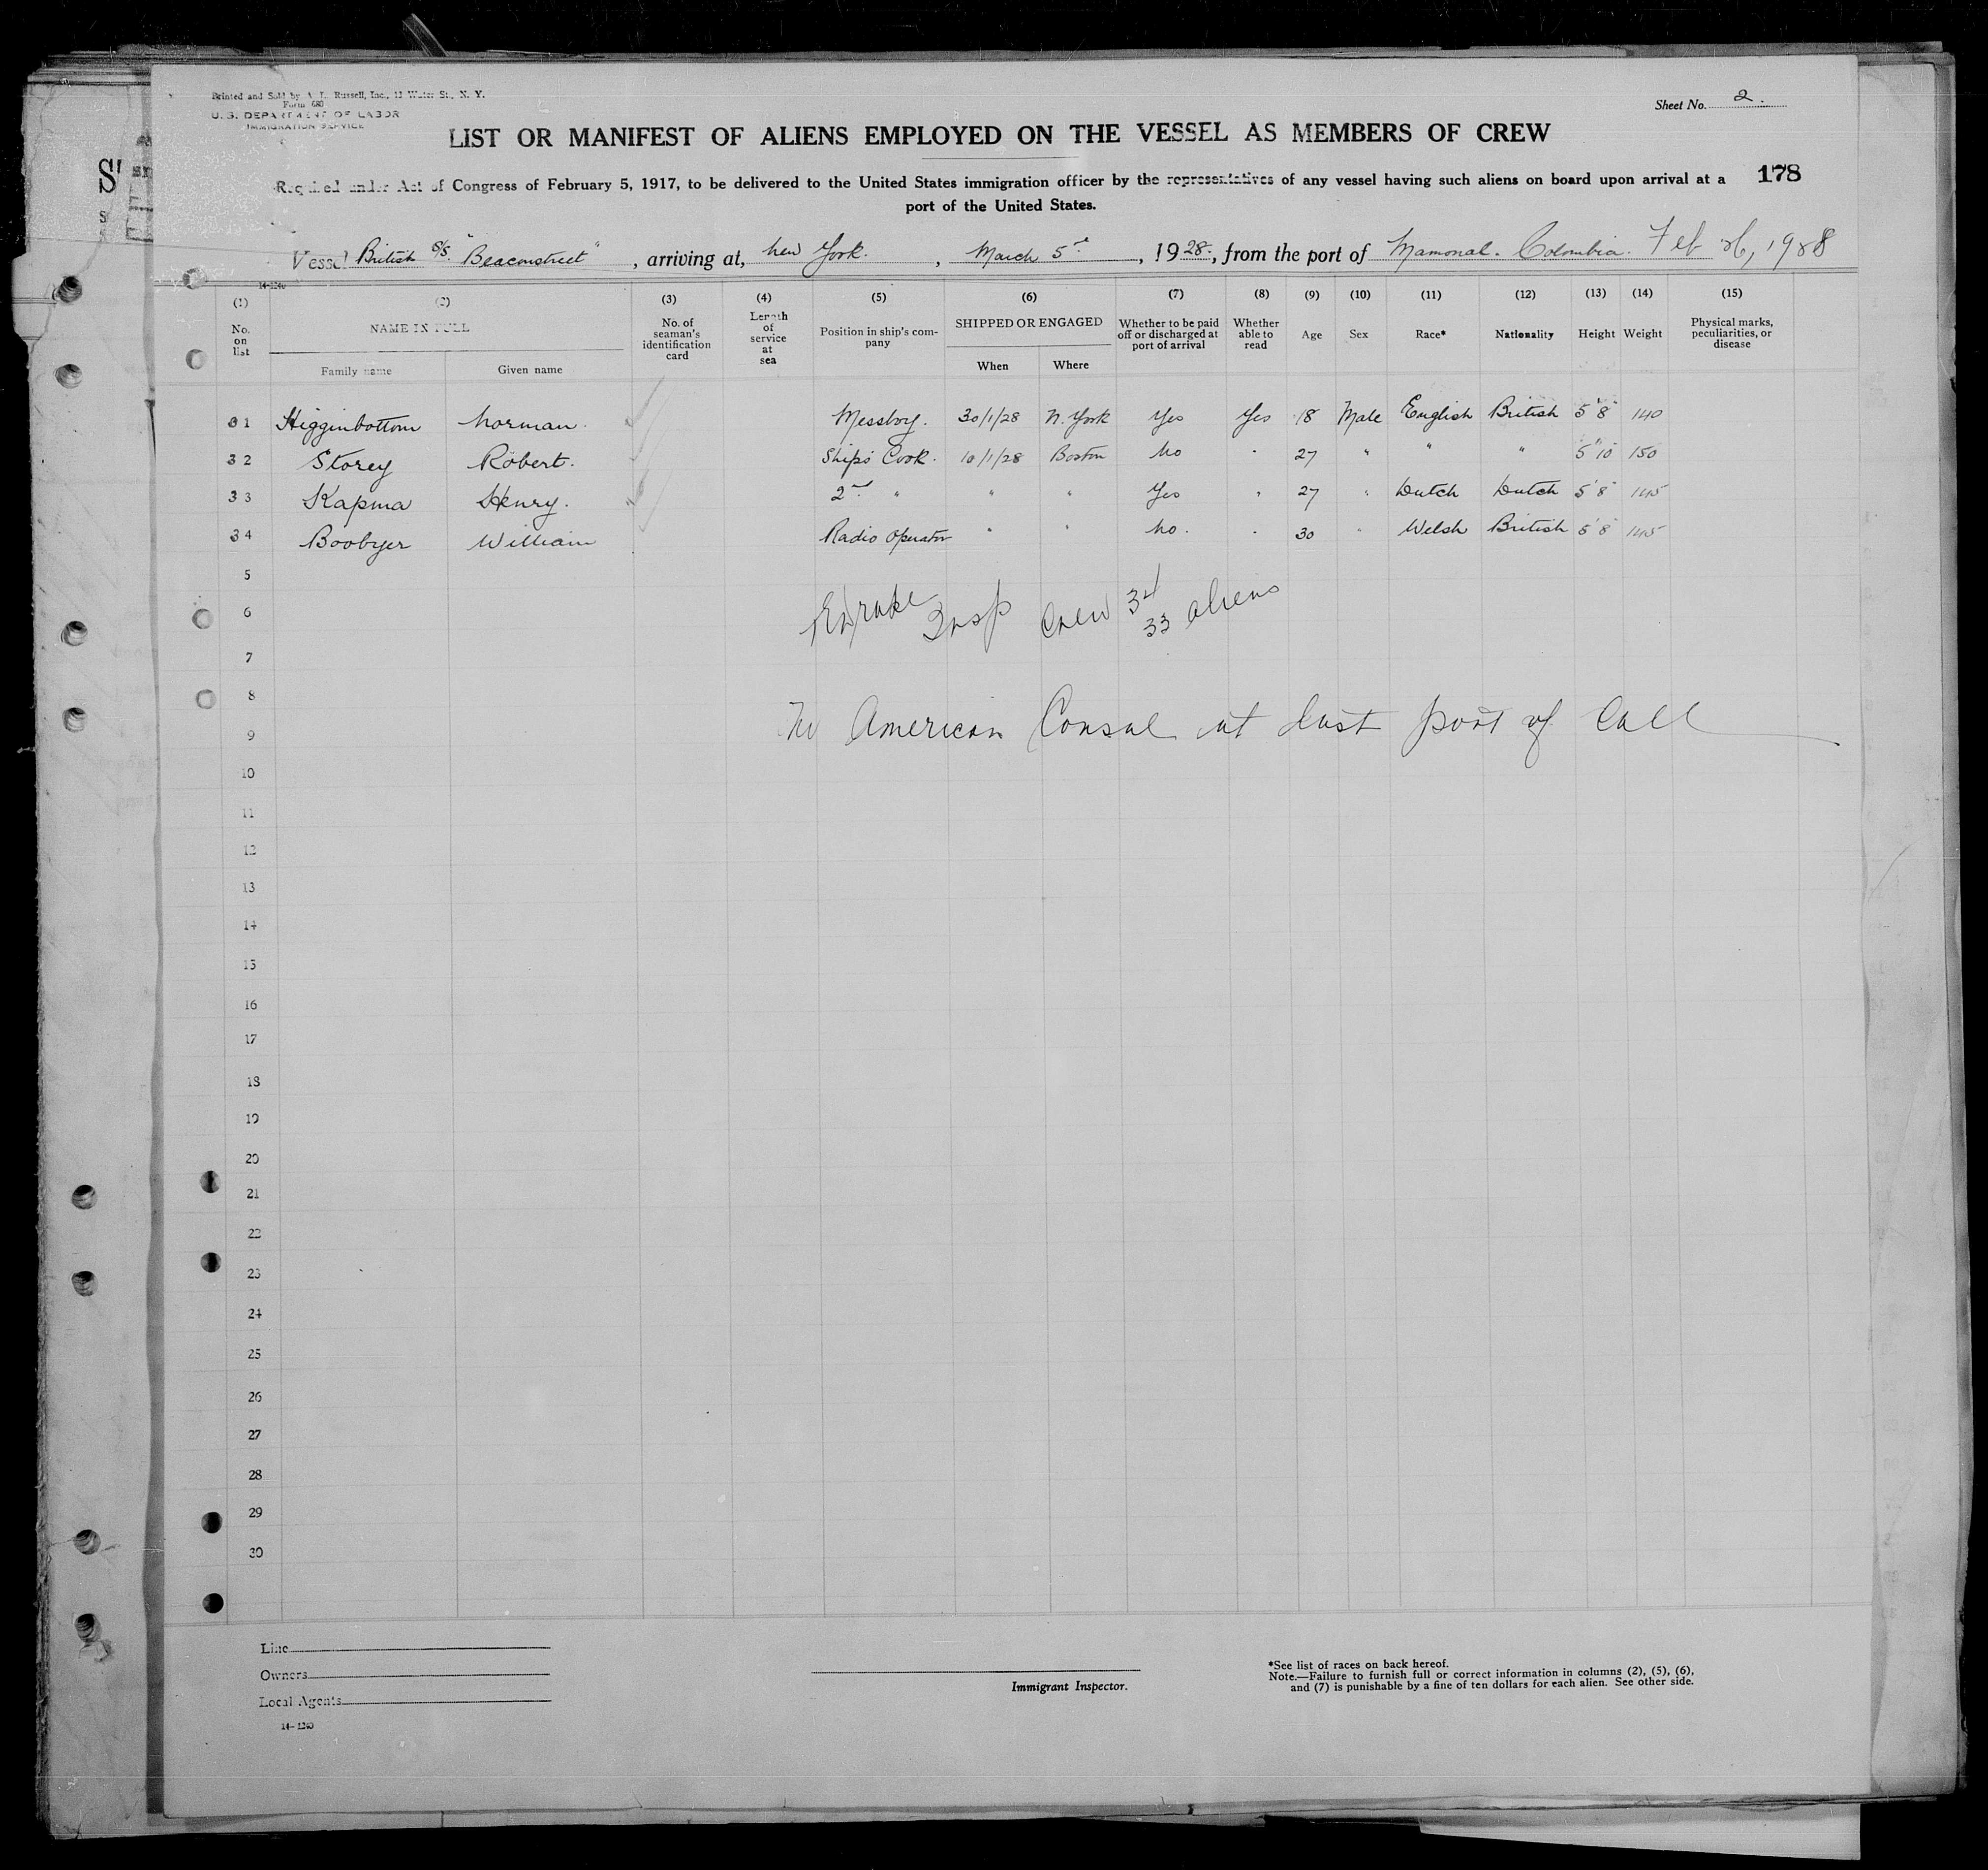 Printed and Sold by A. L. Russell, Inc., 12 Water St., N. Y.
Form 680
U. S. DEPARTMENT OF LABOR
IMMIGRATION SERVICE
Sheet No. 2.
LIST OR MANIFEST OF ALIENS EMPLOYED ON THE VESSEL AS MEMBERS OF CREW
Required under Act of Congress of February 5, 1917, to be delivered to the United States immigration officer by the representatives of any vessel having such aliens on board upon arrival at a 178
port of the United States.
Vessel British S/S. "Beaconstreet", arriving at, New York., March 5, 1928., from the port of Mamonal. Colombia. Feb 26, 1928
14-1240
(1) (2) (3) (4) (5) (6) (7) (8) (9) (10) (11) (12) (13) (14) (15)
No. on list NAME IN FULL Family name Given name No. of seaman's identification card Length of service at sea Position in ship's company SHIPPED OR ENGAGED When Where Whether to be paid off or discharged at port of arrival Whether able to read Age Sex Race* Nationality Height Weight Physical marks, peculiarities, or disease
31 Higginbottom Norman. Messboy. 30/1/28 N. York Yes Yes 18 Male English British 5'8" 140
32 Storey Robert. Ships Cook. 10/1/28 Boston No " 27 " " " 5'10" 150
33 Kapma Henry. 2nd " " " Yes " 27 " Dutch Dutch 5'8" 145
34 Boobyer William Radio Operator " " No. " 30 " Welsh British 5'8" 145
5
6 Insp Crew 34
33 aliens
7
8
9 No American Consul at last port of call
10
11
12
13
14
15
16
17
18
19
20
21
22
23
24
25
26
27
28
29
30
Line
Owners
Local Agents
14-1240
Immigrant Inspector.
*See list of races on back hereof.
Note.—Failure to furnish full or correct information in columns (2), (5), (6),
and (7) is punishable by a fine of ten dollars for each alien. See other side.